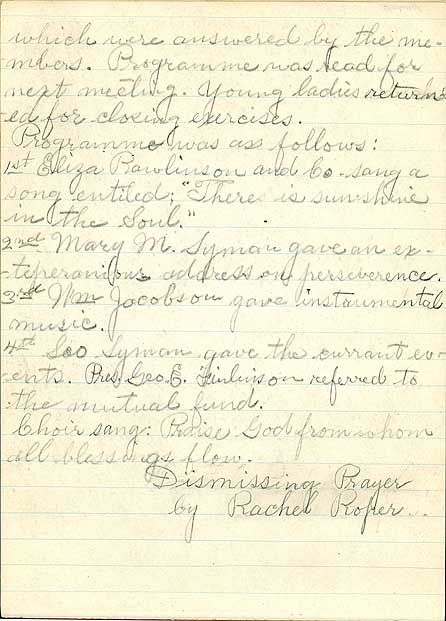 which were answered by the me-
mbers. Programme was read for
next meeting. Young ladies return-
ed for closing exercises.
Programme was as follows:
1st Eliza Rawlinson and Co. sang a
song entiled; "There is sunshine
in the Soul."
2nd Mary M. Lyman gave an ex-
temperanious address on perserverence.
3rd Wm Jacobson gave instaumental
music.
4th Leo Lyman gave the currant ev-
ents. Pres. Geo. E. Finlinson referred to
the mutual fund.
Choir sang: Praise God from whom
all blessings flow.
Dismissing Prayer
by Rachel Roper.